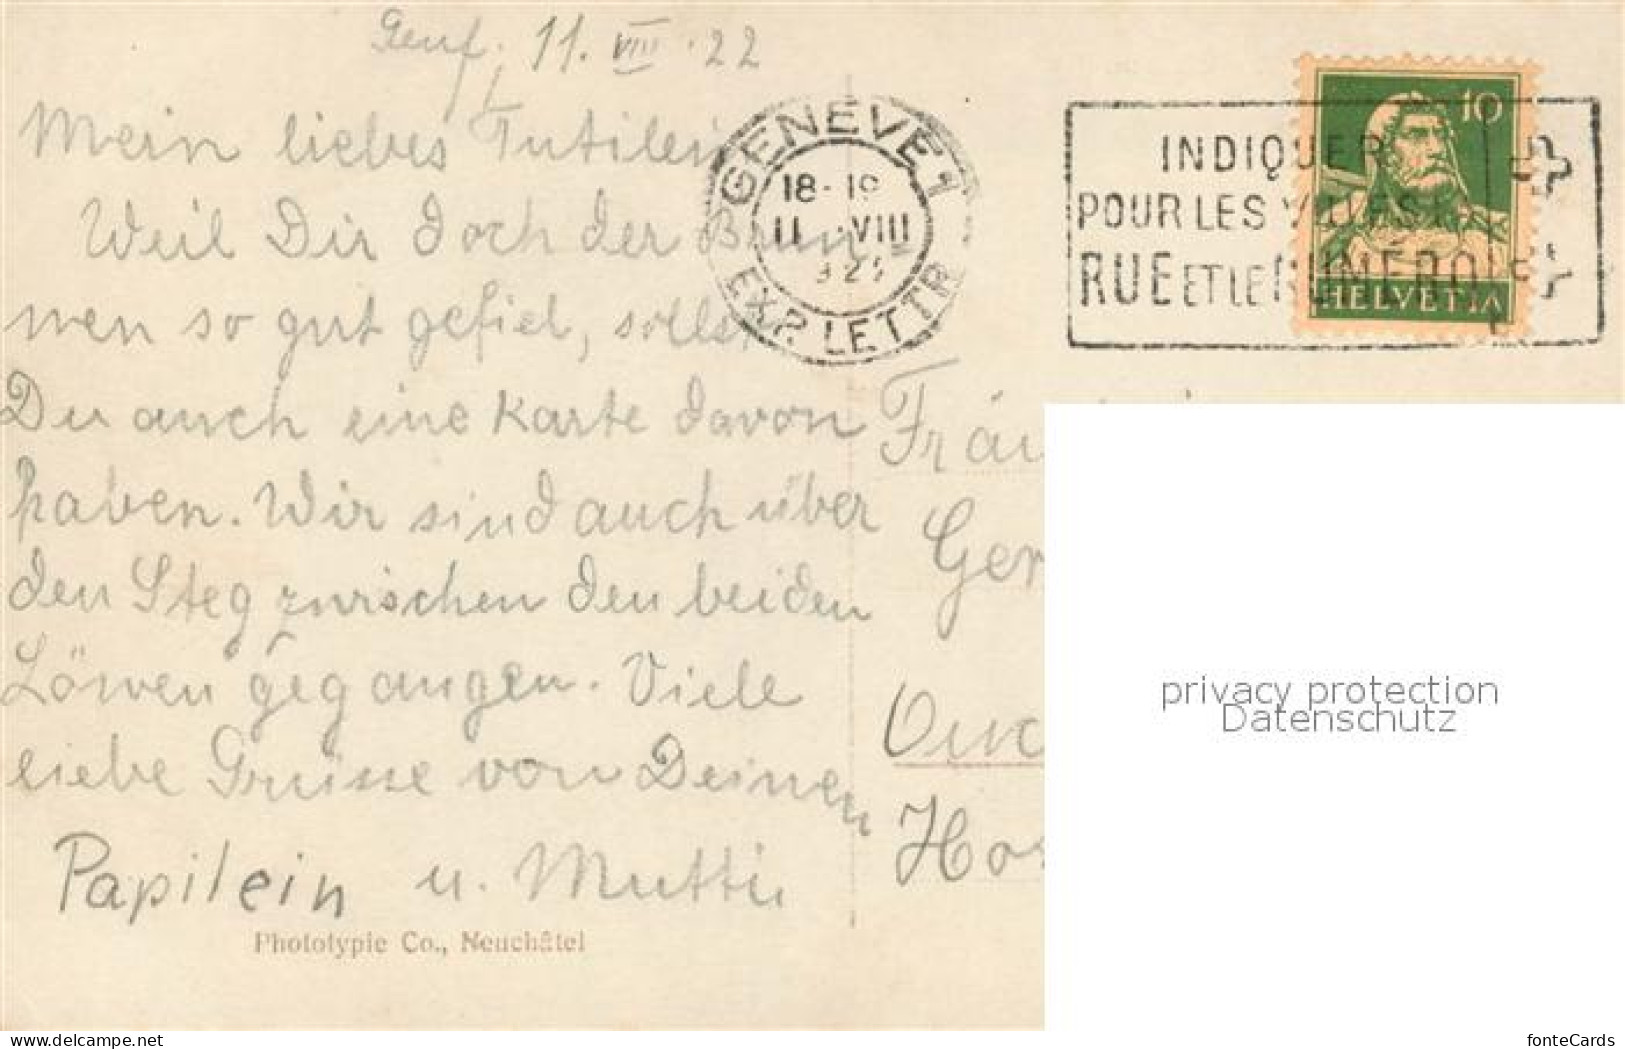 Genf, 11. VIII. 22
Mein liebes Tutilein
Weil Dir doch der Brun=
nen so gut gefiel, sollst
Du auch eine Karte davon
haben. Wir sind auch über
den Steg zwischen den beiden
Löwen gegangen. Viele
liebe Grüsse von Deinen
Papilein u. Mutti
Phototypie Co., Neuchâtel
GENEVE 1
18-19
11. VIII
EXP. LETTR
INDIQUER
POUR LES VILLES
RUE ET LE NUMÉRO
10
HELVETIA
Fräu
Ger
Ouc
Hos
privacy protection
Datenschutz
www.delcampe.net
fonteCards